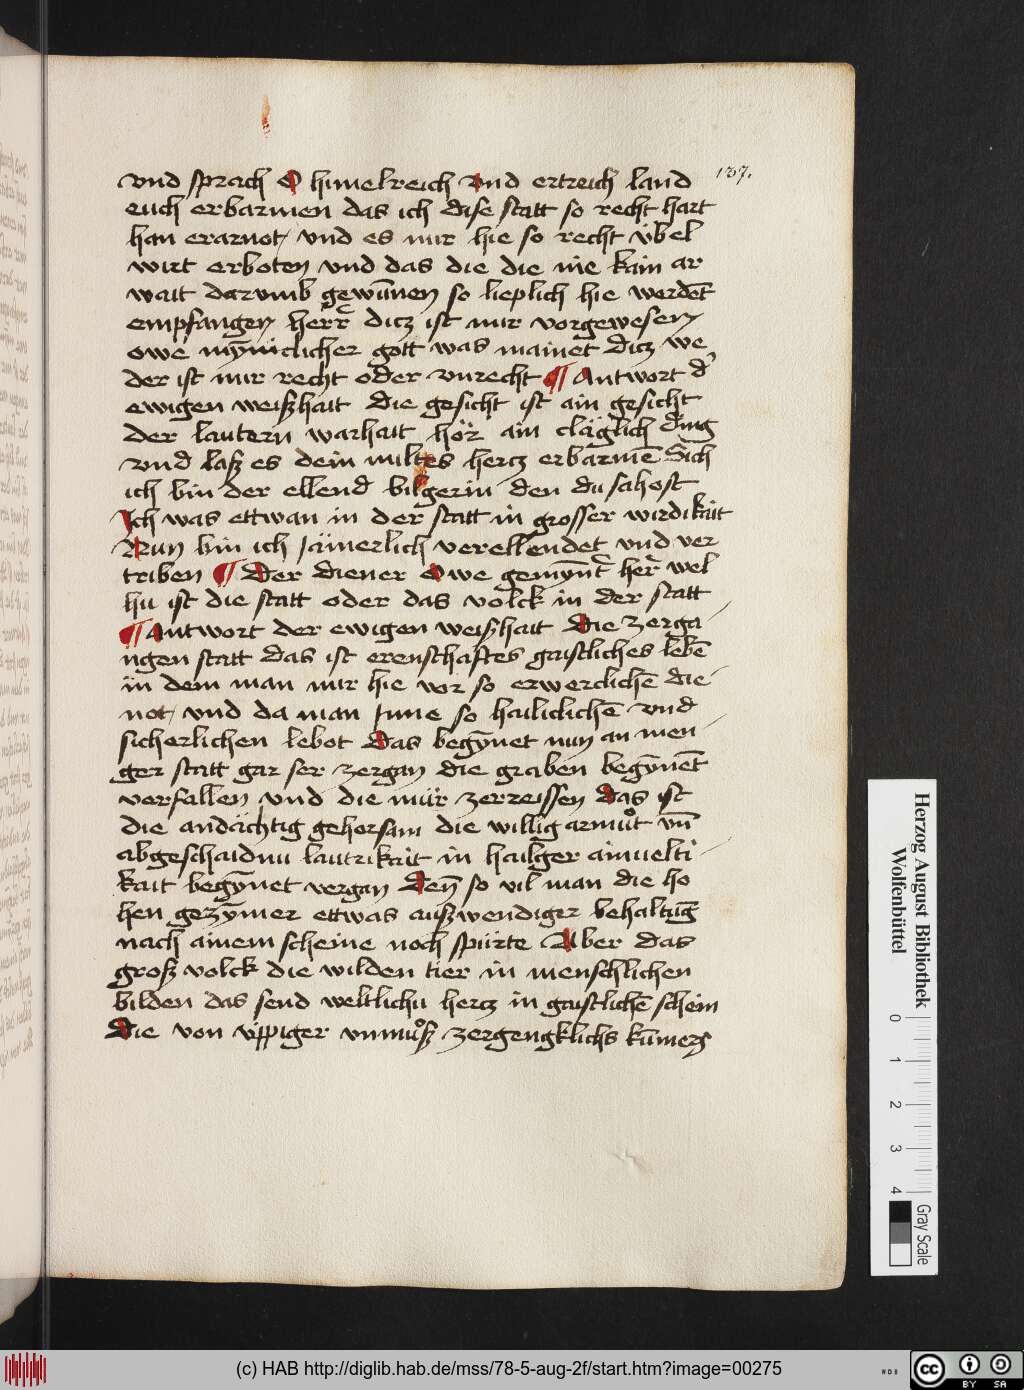 137.
vnd sprach O himelreich vnd ertreich land
euch erbarmen das ich dise statt so recht hart
han erarnot / vnd es mir hie so recht v̈bel
wirt erboten vnd das die die nie kain ar
wait darvmb gewūnen so lieplich hie werdēt
empfangen herr̄ dicz ist mir vorgewesen
owe mȳniclicher gott was mainet dicz we
der ist mir recht oder vnrecht ¶ Antwort d'
ewigen weißhait die gesicht ist ain gesicht
der lautern warhait hör ain cläglich ding
vnd laß es dein miltes hercz erbarmē Sich
ich bin der ellend bilgerin den du sahest
Ich was ettwan in der statt in grosser wirdikait
Nun bin ich Jämerlich verellendet vnd ver
triben ¶ Der diener Owe gemȳnt' her̄ wel
hu ist die statt oder das volck in der statt
¶ Antwort der ewigen weißhait Die zerga
ngen statt das ist erenschaftes gaistliches lebē
in dem man mir hie vor so erwerclichē die
not / vnd da man Jnne so hailiclichē vnd
sicherlichen lebot Das begȳnet nun an men
ger statt gar ser zergan die graben begȳnēt
verfallen vnd die mür zerreissen Das ist
die andächtig gehorsam die willig armůt vn̄
abgeschaidnu lautrikait in hailger ainuelti
kait begȳnet vergan Den̄ so vil man die ho
hen gezȳmer ettwas außwendiger behaltūg
nach ainem scheine noch spürte Aber das
groß volck die wilden tier in menschlichen
bilden das send weltlichu hercz in gaistlichē schein
Die von v̈ppiger vnmůß zergengklichs kūmers
Herzog August Bibliothek
Wolfenbüttel
0 1 2 3 4
Gray Scale
(c) HAB http://diglib.hab.de/mss/78-5-aug-2f/start.htm?image=00275
cc BY SA